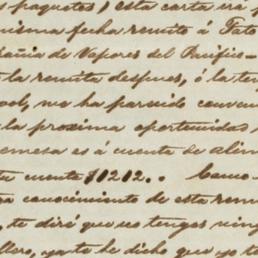 s paquetes) esta carta irá p
misma fecha remito á Tato
añia de Vapores del Pacifico-
la remita despues, ó la ten
ool, me ha parecido conven
la proxima oportunidad
emesa es á cuenta de alim
te cuenta $1212.. Como
ga conocimiento de esta rem
, te diré que no tengas ning
llero, ya te he dicho que yo t